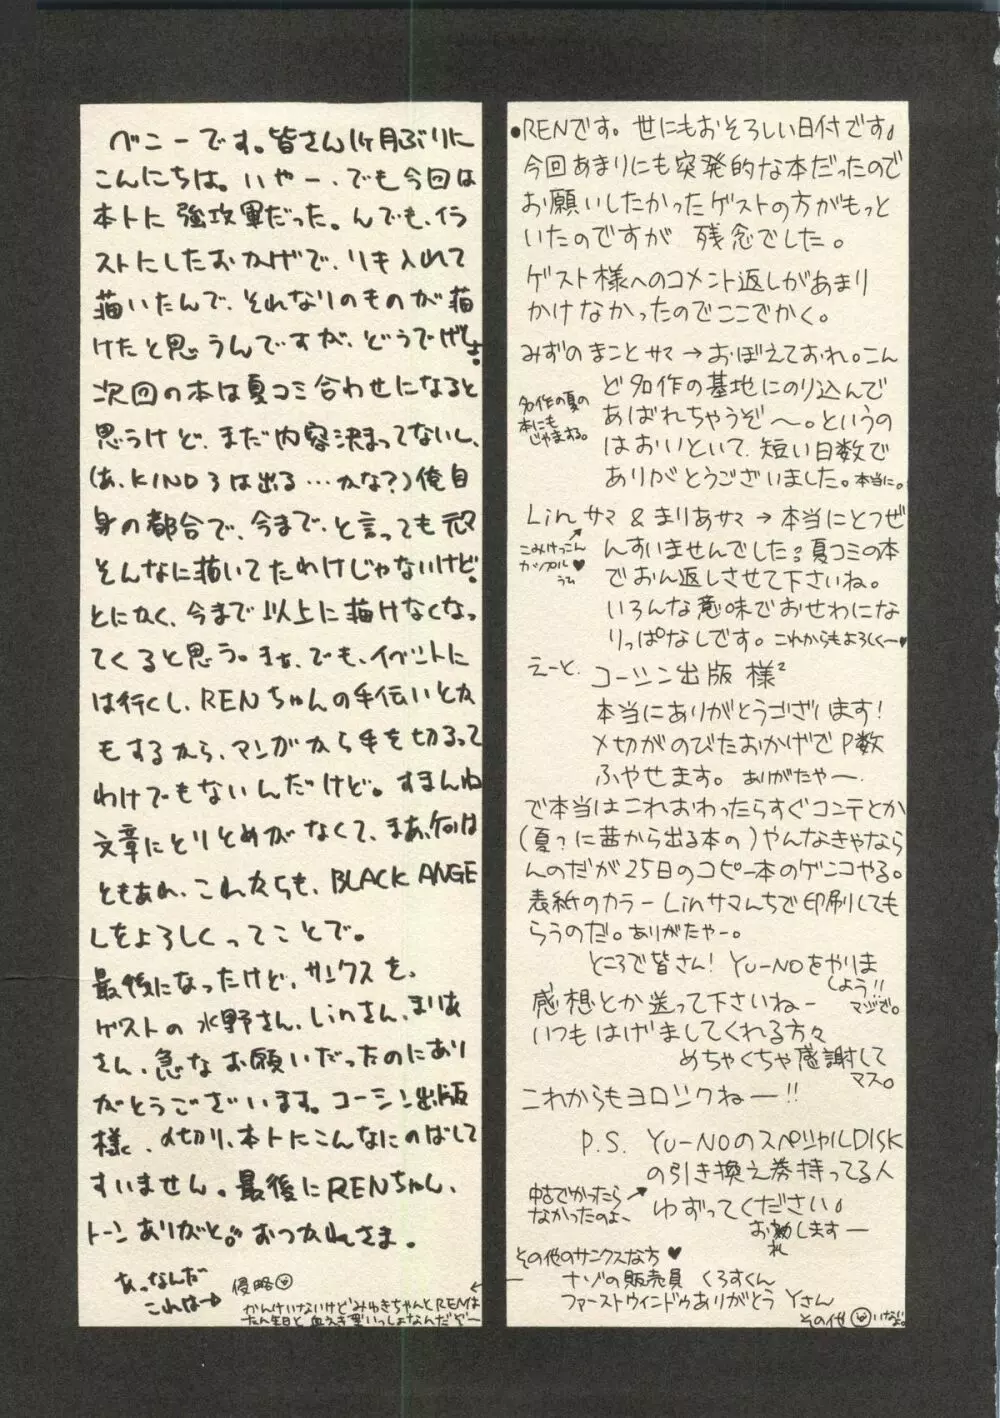 ベニーです。皆さん1ヶ月ぶりに
こんにちは。いやー、でも今回は
本トに強攻軍だった。んでも、イラ
ストにしたおかげで、りき入れて
描いたんで、それなりのものが描
けたと思うんですが、どうでげしょ!
次回の本は夏コミ合わせになると
思うけど、まだ内容決まってないし、
(あ、KIND 3は出る…かな?)俺自
身の都合で、今まで、と言っても元々
そんなに描いてたわけじゃないけど。
とにかく、今まで以上に描けなくなっ
てくると思う。まぁ、でも、イベントに
は行くし、RENちゃんの手伝いとか
もするから、マンガから手を切るって
わけでもないんだけど。すまんね
文章にとりとめがなくて、まぁ、何は
ともあれ、これからも、BLACK ANGE
Lをよろしくってことで。
最後になったけど、サンクスを、
ゲストの水野さん、Linさん、まりあ
さん、急なお願いだったのにあり
がとうございます。コーシン出版
様、〆切り、本トにこんなにのばして
すいません。最後にRENちゃん、
トーンありがと。おつかれさま。
あっなんだ
これは→
侵略
かんけいないけどみゆきちゃんとRENは
たん生日と血えき型いっしょなんだぞー
●RENです。世にもおそろしい日付です。
今回あまりにも突発的な本だったので
お願いしたかったゲストの方がもっと
いたのですが 残念でした。
ゲスト様へのコメント返しがあまり
かけなかったのでここでかく。
みずのまことサマ→おぼえておれ。こん
ど名作の基地にのり込んで
あばれちゃうぞ〜。というの
はおいといて、短い日数で
ありがとうございました。本当に。
名作の夏の
本にも
じゃまする。
Linサマ&まりあサマ→本当にとつぜ
んすいませんでした。夏コミの本
でおん返しさせて下さいね。
いろんな意味でおせわにな
りっぱなしです。これからもよろしく〜♥
こみけっこん
カップル♥
うふ
えーと、コーシン出版様²
本当にありがとうございます!
〆切がのびたおかげでP数
ふやせます。ありがたやー。
で本当はこれおわったらすぐコンテとか
(夏?に茜から出る本の)やんなきゃなら
んのだが25日のコピー本のゲンコやる。
表紙のカラーLinサマんちで印刷しても
らうのだ。ありがたやー。
ところで皆さん! YU-NOをやりま
しょう!!
マジで。
感想とか送って下さいねー
いつもはげましてくれる方々
めちゃくちゃ感謝して
マス。
これからもヨロシクねー!!
P.S. YU-NOのスペシャルDISK
の引き換え券持ってる人
ゆずってください。
お礼しますー
中古でかったら
なかったのよ、
その他のサンクスな方♥
ナゾの販売員 くろすくん
ファーストウインドゥありがとう Yさん
その他